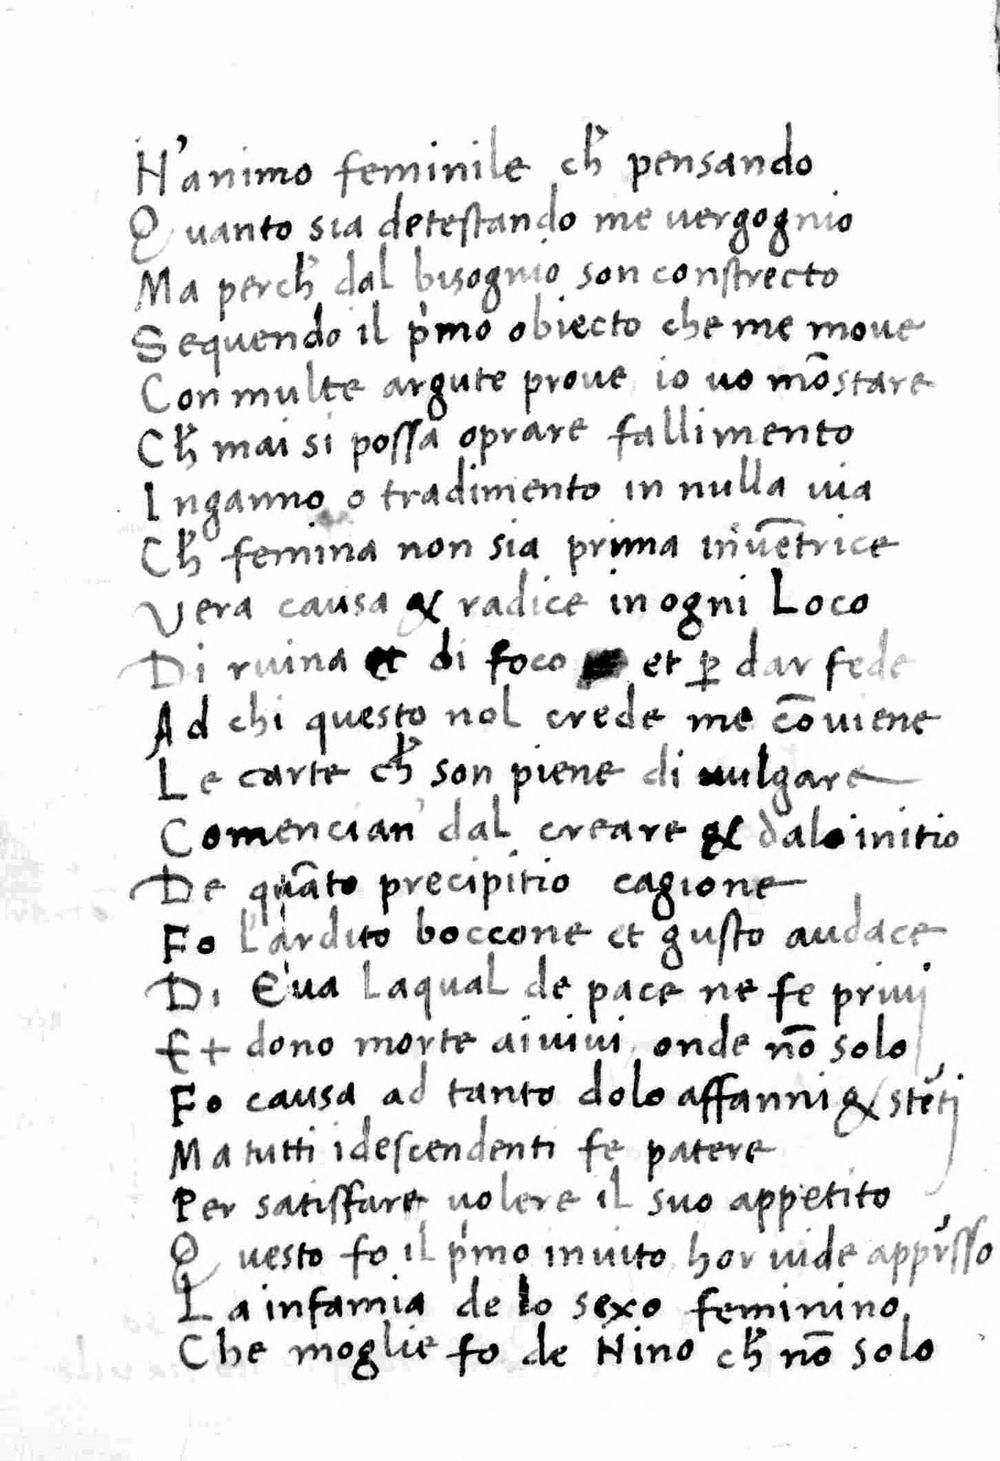 N'animo feminile ch̃ pensando
Quanto sia detestando me uergognio
Ma perch̃ dal bisognio son constrecto
Sequendo il p'mo obiecto che me moue
Con multe argute proue io uo mõstare
Ch̃ mai si possa oprare fallimento
Inganno o tradimento in nulla uia
Ch̃ femina non sia prima inuẽtrice
Vera causa & radice in ogni Loco
Di ruina et di foco et p̱ dar fede
Ad chi questo nol crede me cõuiene
Le carte ch̃ son piene di uulgare
Comencian' dal creare & dalo initio
De quãto precipitio cagione
Fo l'ardito boccone et gusto audace
Di Eua laqual de pace ne fe priuj
Et dono morte aiuiui onde nõ solo
Fo causa ad tanto dolo affanni & stẽtj
Ma tutti idescendenti fe patere
Per satisffare uolere il suo appetito
Questo fo il p'mo inuito hor uide app'sso
La infamia de lo sexo feminino
Che moglie fo de Nino ch̃ nõ solo